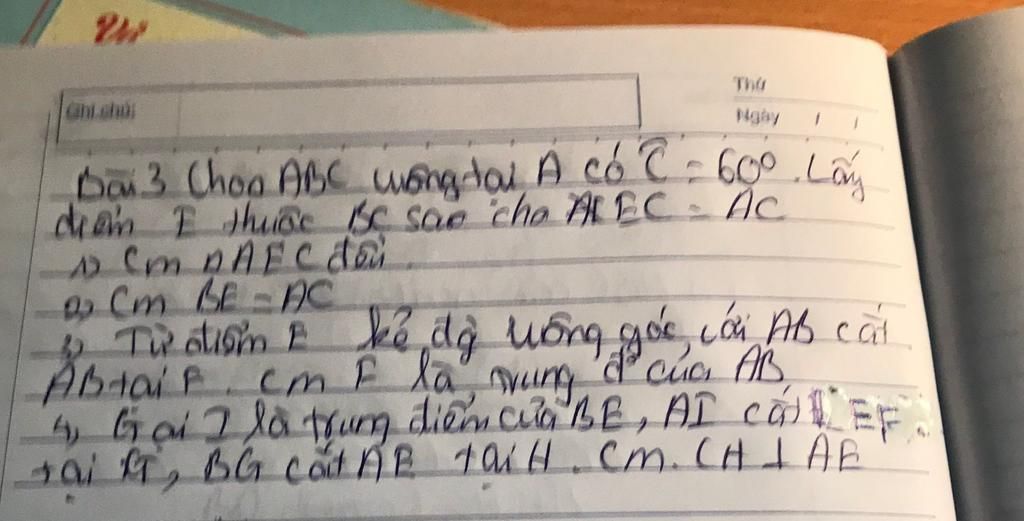 Ghi chú:
Thứ
Ngày / /
Bài 3 Cho △ ABC vuông tại A có Ĉ = 60°. Lấy
điểm E thuộc BC sao cho EC = AC
1) Cm △AEC đều.
2) Cm BE = AC
3) Từ điểm E kẻ đg vuông góc với AB cắt
AB tại F. Cm F là trung đ' của AB
4) Gọi I là trung điểm của BE, AI cắt EF
tại G, BG cắt AE tại H. Cm. CH ⊥ AE